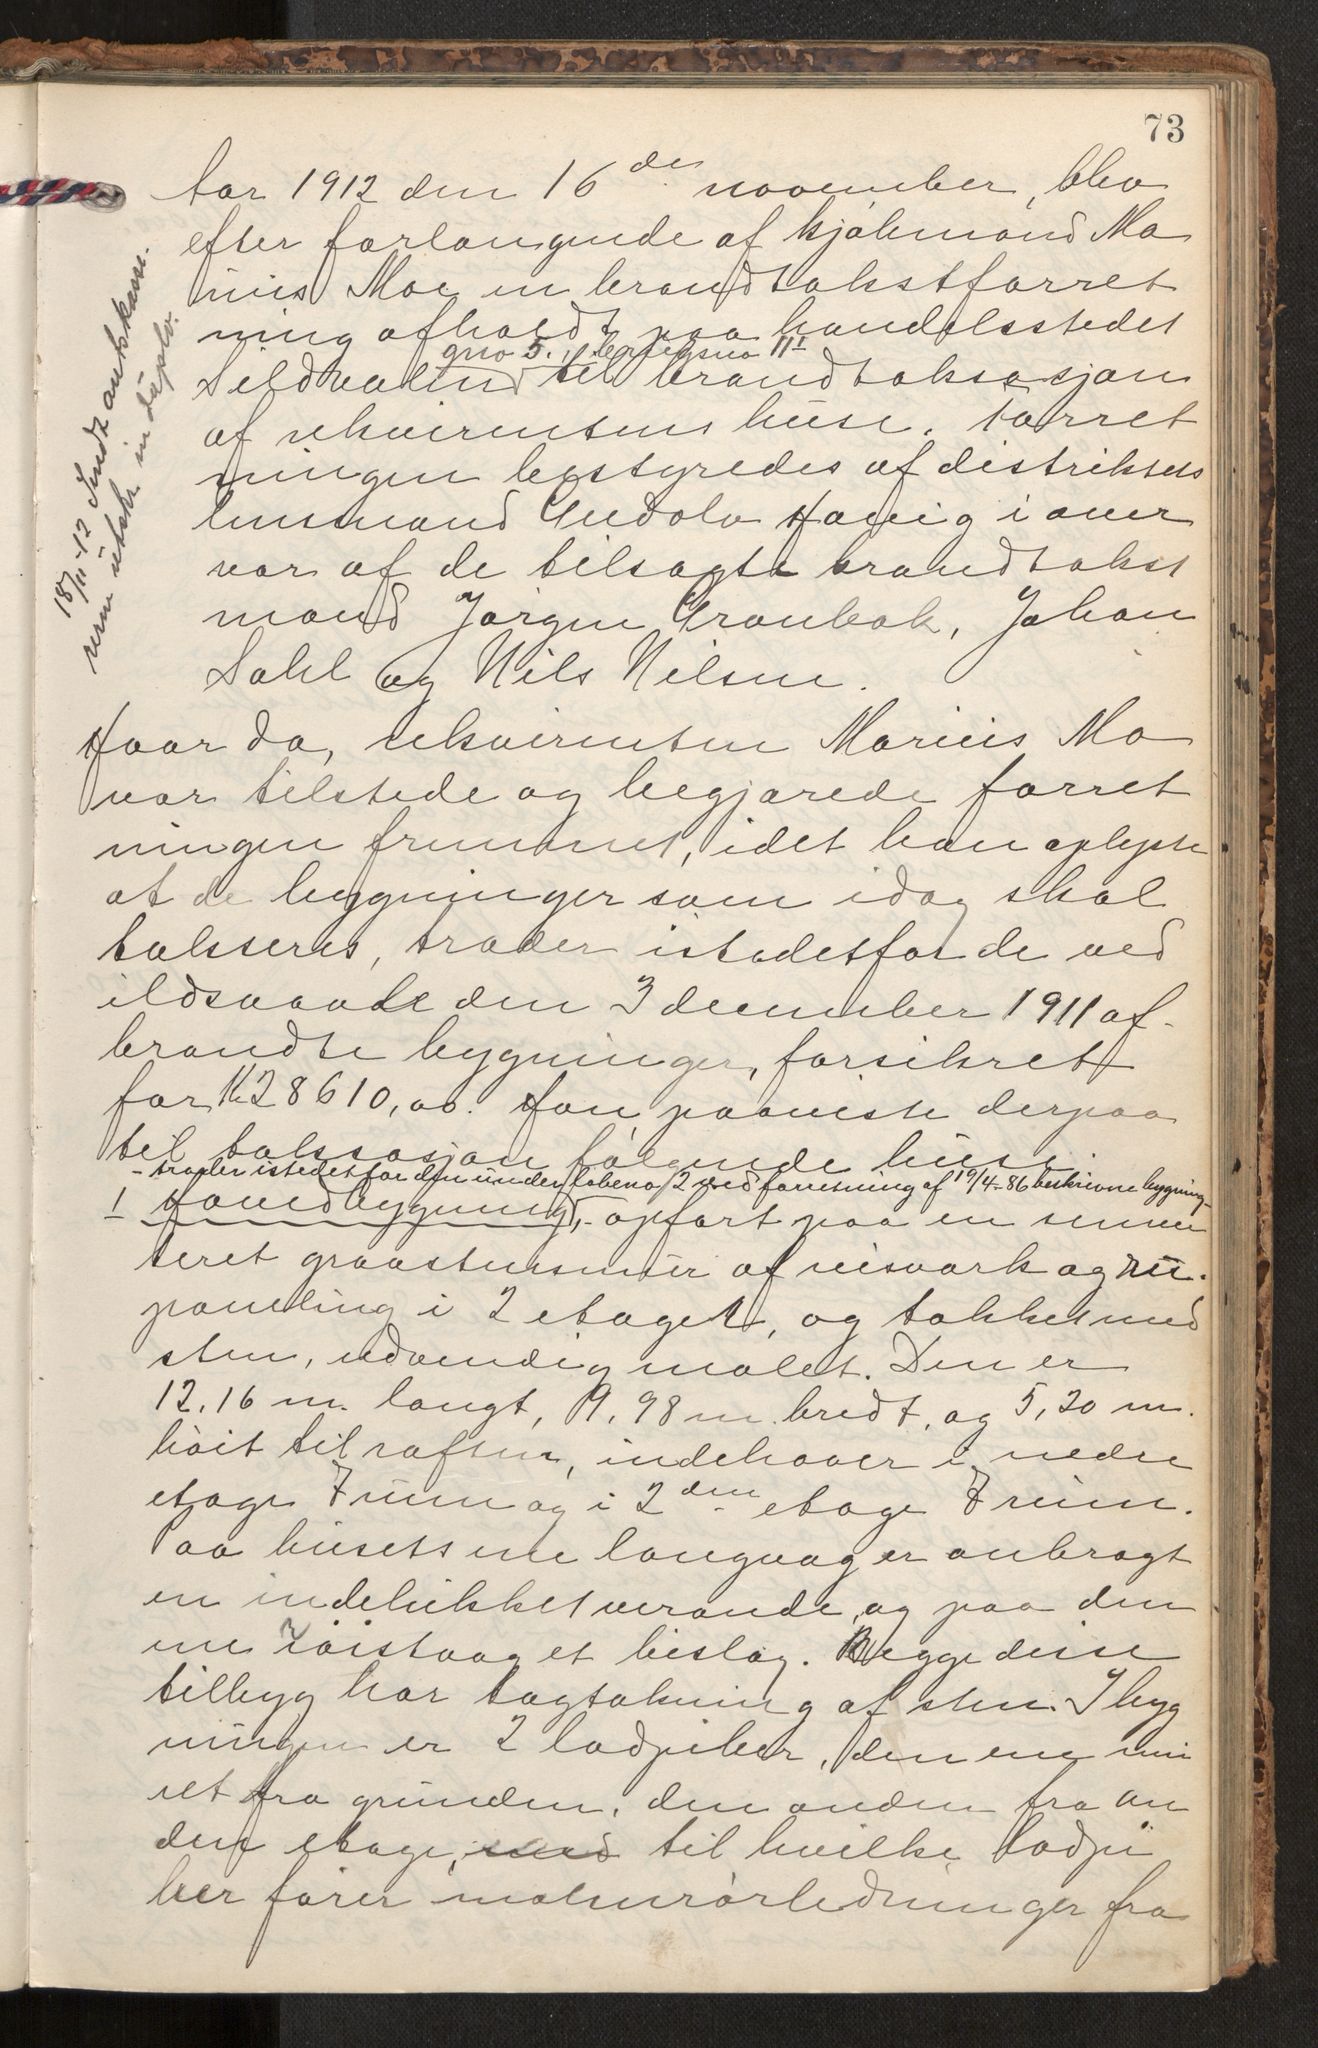 73
Aar 1912 den 16de november, blev
efter forlangende af kjøbmand Ma
rius Moe en brandtakstforret
ning afholdt paa handelsstedet
gno 5. brugsno 111
Sildvalen til brandtaksasjon
af rekvirentens huse. Forret
ningen bestyredes af distriktets
lensmand Gudolv Havig i over
vær af de tilsagte brandtakst
mænd Jørgen Grønbæk, Johan
Dahl og Nils Nilsen.
18/11-12 Sendt amtskasse-
reren utskr. in duplo.
Hvor da, rekvirenten Marius Mo
var tilstede og begjærede forret
ningen fremmet, idet han oplyste
at de bygninger som idag skal
takseres, træder istedetfor de ved
ildsvaade den 3 december 1911 af-
brændte bygninger, forsikret
for K 28610,00. Han paaviste derpaa
til taksasjon følgende huse:
- træder istedetfor den under løbeno 2 ved forretning af 19/4-86 beskrevne bygning -
1 Hovedbygning, - opført paa en semen
teret graastensmur af reisværk og
paneling i 2 etager, og tækket med
sten, udvendig malet. Den er
12,16 m. langt, 9,98 m. bredt, og 5,20 m.
høit til raften, indehaver i nedre
etage 7 rum og i 2den etage 7 rum.
Paa husets ene langvæg er anbragt
en indelukket verande, og paa den
ene røistvæg et bislag. Begge disse
tilbyg har tagtækning af sten. I byg
ningen er 2 ladpiber, den ene mu
ret fra grunden, den anden fra an
den etage, til hvilke ladpi
ber fører rørledninger fra